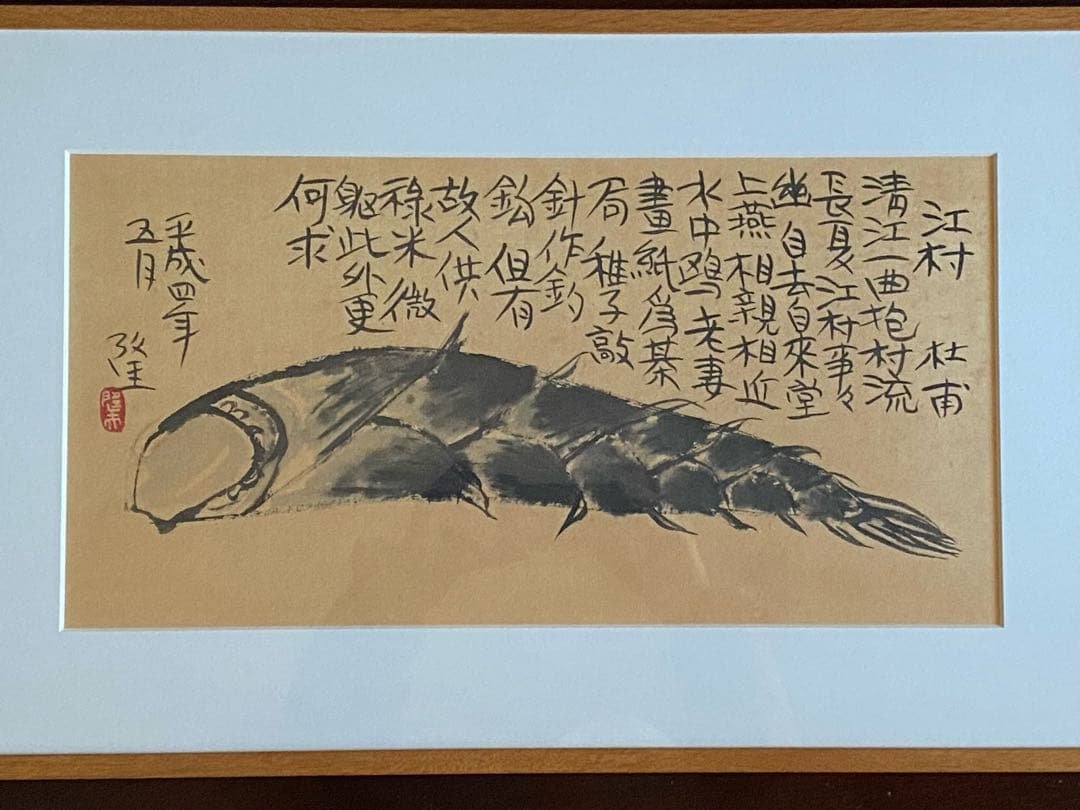 江村　杜甫
清江一曲抱村流
長夏江村事々
幽自去自來堂
上燕相親相近
水中鴎老妻
畫紙爲棊
局稚子敲
針作釣
鈎但有
故人供
祿米微
軀此外更
何求
平成四年
五月